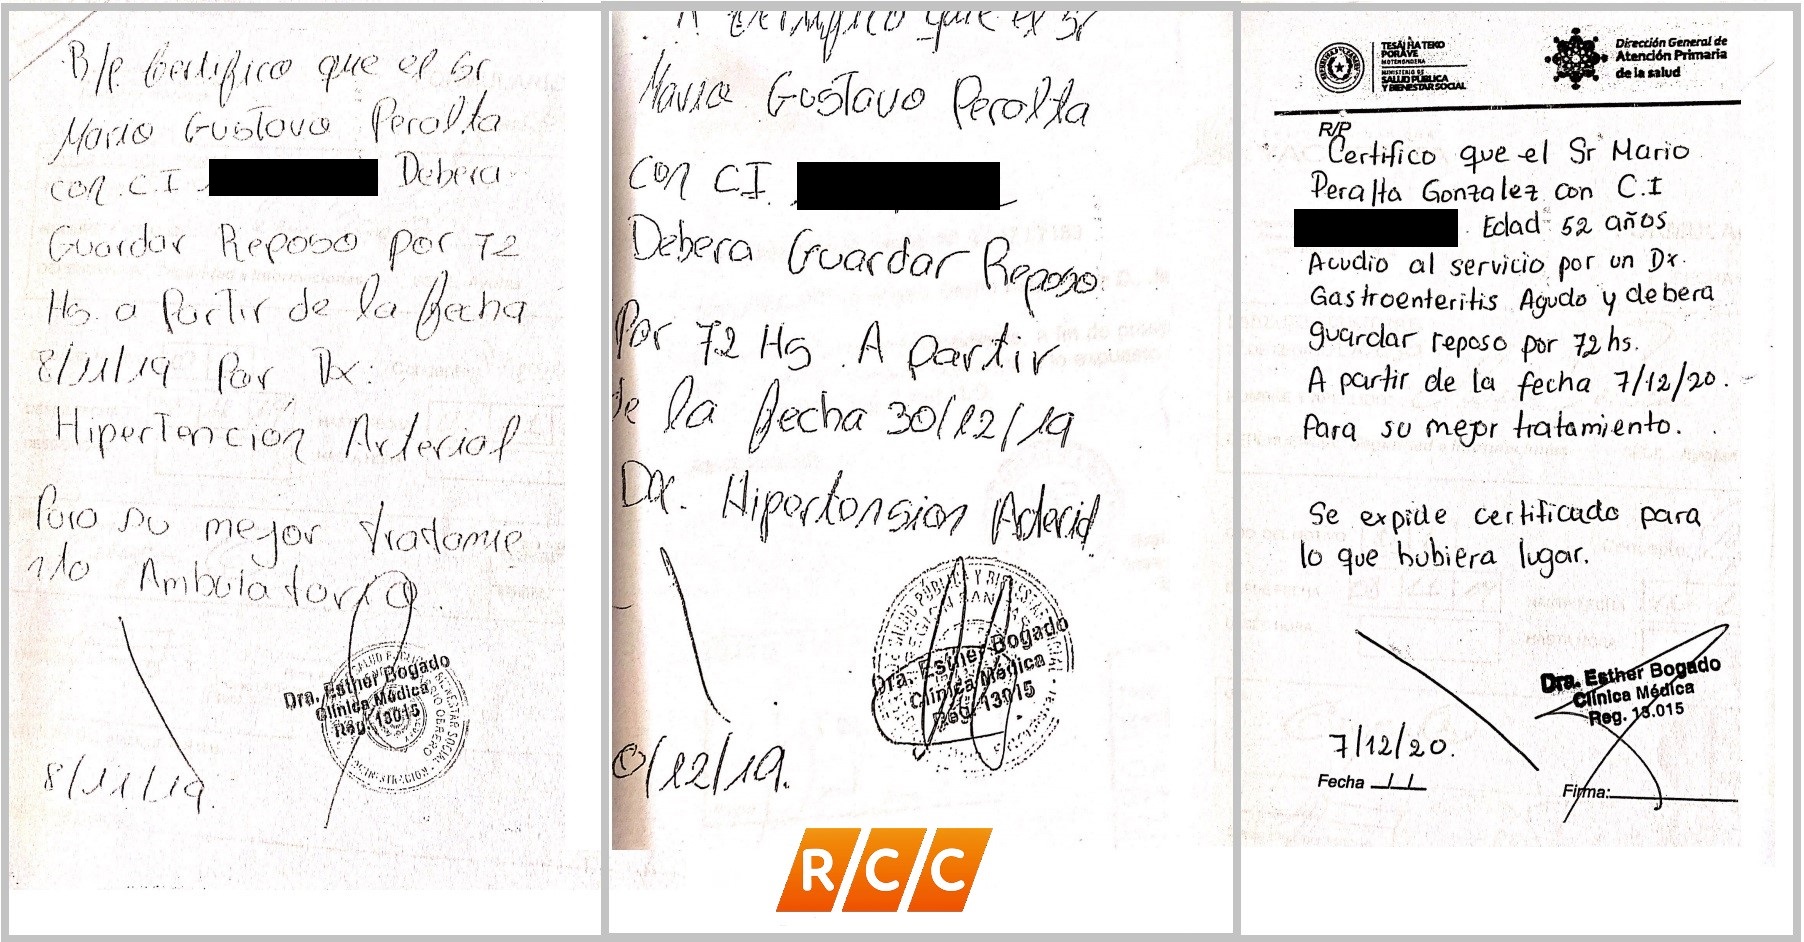 R/P. Certifico que el Sr
Mario Gustavo Peralta
con C.I Debera
Guardar Reposo por 72
Hs. a Partir de la fecha
8/11/19 Por Dx:
Hipertención Arterial
Para su mejor tratamie
nto Ambulatorio.
Dra. Esther Bogado
Clínica Médica
Reg. 13015
8/11/19.
Certifico que el Sr
Mario Gustavo Peralta
con C.I.
Debera Guardar Reposo
Por 72 Hs. A partir
de la fecha 30/12/19
Dx. Hipertension Arterial
SALUD PÚBLICA Y BIENESTAR SOCIAL
Dra. Esther Bogado
Clínica Médica
Reg. 13015
0/12/19.
RCC
TESÃI HA TEKO
PORÃVE
MOTENONDEHA
MINISTERIO DE
SALUD PÚBLICA
Y BIENESTAR SOCIAL
Dirección General de
Atención Primaria
de la salud
R/P
Certifico que el Sr Mario
Peralta Gonzalez con C.I
Edad 52 años
Acudio al servicio por un Dx.
Gastroenteritis Agudo y debera
guardar reposo por 72 hs.
A partir de la fecha 7/12/20.
Para su mejor tratamiento.
Se expide certificado para
lo que hubiera lugar.
Dra. Esther Bogado
Clínica Médica
Reg. 13.015
7/12/20.
Fecha / /
Firma: